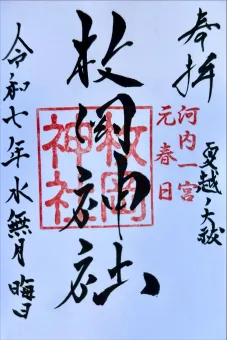 奉拝
夏越ノ大祓
河内一宮
元春日
枚岡神社
枚岡神社
令和七年水無月晦日